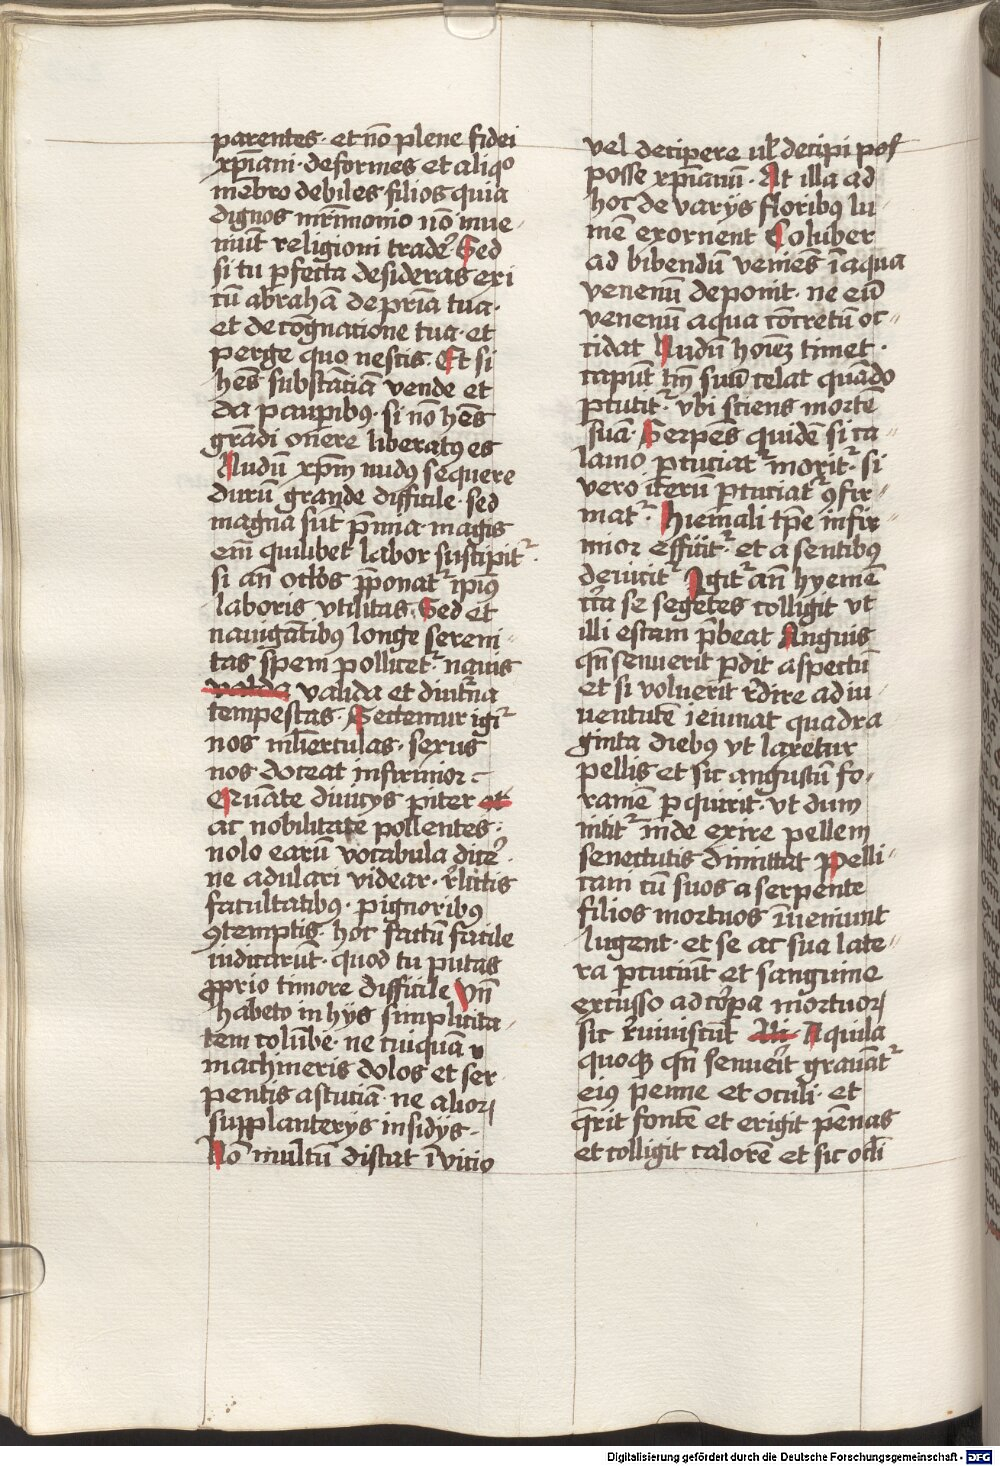 parentes · et nō plene fidei
xp̄iani · deformes et aliqo
mēbro debiles filios quia
dignos mr̄imonio nō inue-
niūt religioni tradeʳ Sed
si tu ꝑfecta desideras exi
cū abrahā de pr̄ia tua ·
et de cōgnatione tua · et
perge quo nescis · Et si
hēs substātiā vende et
da pauꝑibꝰ · si nō hēs
grādi onere liberatꝰ es
Nudū xp̄m nudꝰ sequere
durū grande difficile · sed
magna sūt p̄mia · magis
em̄ quilibet labor suscipitʳ
si an̄ ocl̄os p̄ponatʳ ip̄iꝰ
laboris vtilitas · Sed et
nauigātibꝰ longe sereni-
tas spem pollicetʳ nauis
valida valida et diutr̄na
tempestas · Sectemur igiʳ
nos ml̄ierculas · sexus
nos doceat infirmior
Quāte diuicys piter et
ac nobilitate pollentes ·
nolo earū vocabula diceʳ ·
ne adulari videar · rl̄ictis
facultatibꝰ · pignoribꝰ
ꝯtemptis · hoc factū facile
iudicarūt · quod tu putas
ꝓprio timore difficile Vn̄
habeto in hijs simplicita-
tem colūbe · ne cuiquā
machineris dolos et ser-
pentis astuciā · ne alioꝝ
supplanterijs insidijs -
Nō multū distat ī vicio
vel decipere ul̄ decipi pos
posse xp̄ianū · At illa ad
hoc de varijs floribꝰ lu
mē exornent Coluber
ad bibendū veniēs ī aqua
venenū deponit · ne eū
venenū aqua cōcretū oc-
cidat Nudū hoīeꝫ timet ·
caput tm̄ suū celat quādo
ꝑcutitʳ · vbi sciens morte
suā · Serpēs quidē si ca-
lamo ꝑcuciatʳ moritʳ · si
vero iterū ꝑcuciatʳ ꝯfir-
matʳ · Hiemali tp̄e infir-
mior efficitʳ · et a sentibꝰ
deuicitʳ Igitʳ an̄ hyemē
cͥca se segetes colligit vt
illi estam p̄beat Anguis
qn̄ senuerit ꝑdit aspectū
et si voluerit rͤdire ad iu-
uentutē ieiunat quadra
ginta diebꝰ vt laxetur
pellis et sic angustū fo-
ramē ꝑquirit · vt dum
inde exire pellem
senectutis dimittat Pelli-
cani cū suos a serpente
filios mortuos īueniunt
lugent · et se ac sua late-
ra ꝑcuciūt et sanguine
excusso ad corpa mortuoꝝ
sic rͤuiuiscūt Aquila
quoqꝫ qn̄ senuerit grauātʳ
eiꝰ penne et oculi · et
q̄rit fontē et erigit pēnas
et colligit calorē et sic ocl̄i
Digitalisierung gefördert durch die Deutsche Forschungsgemeinschaft - DFG